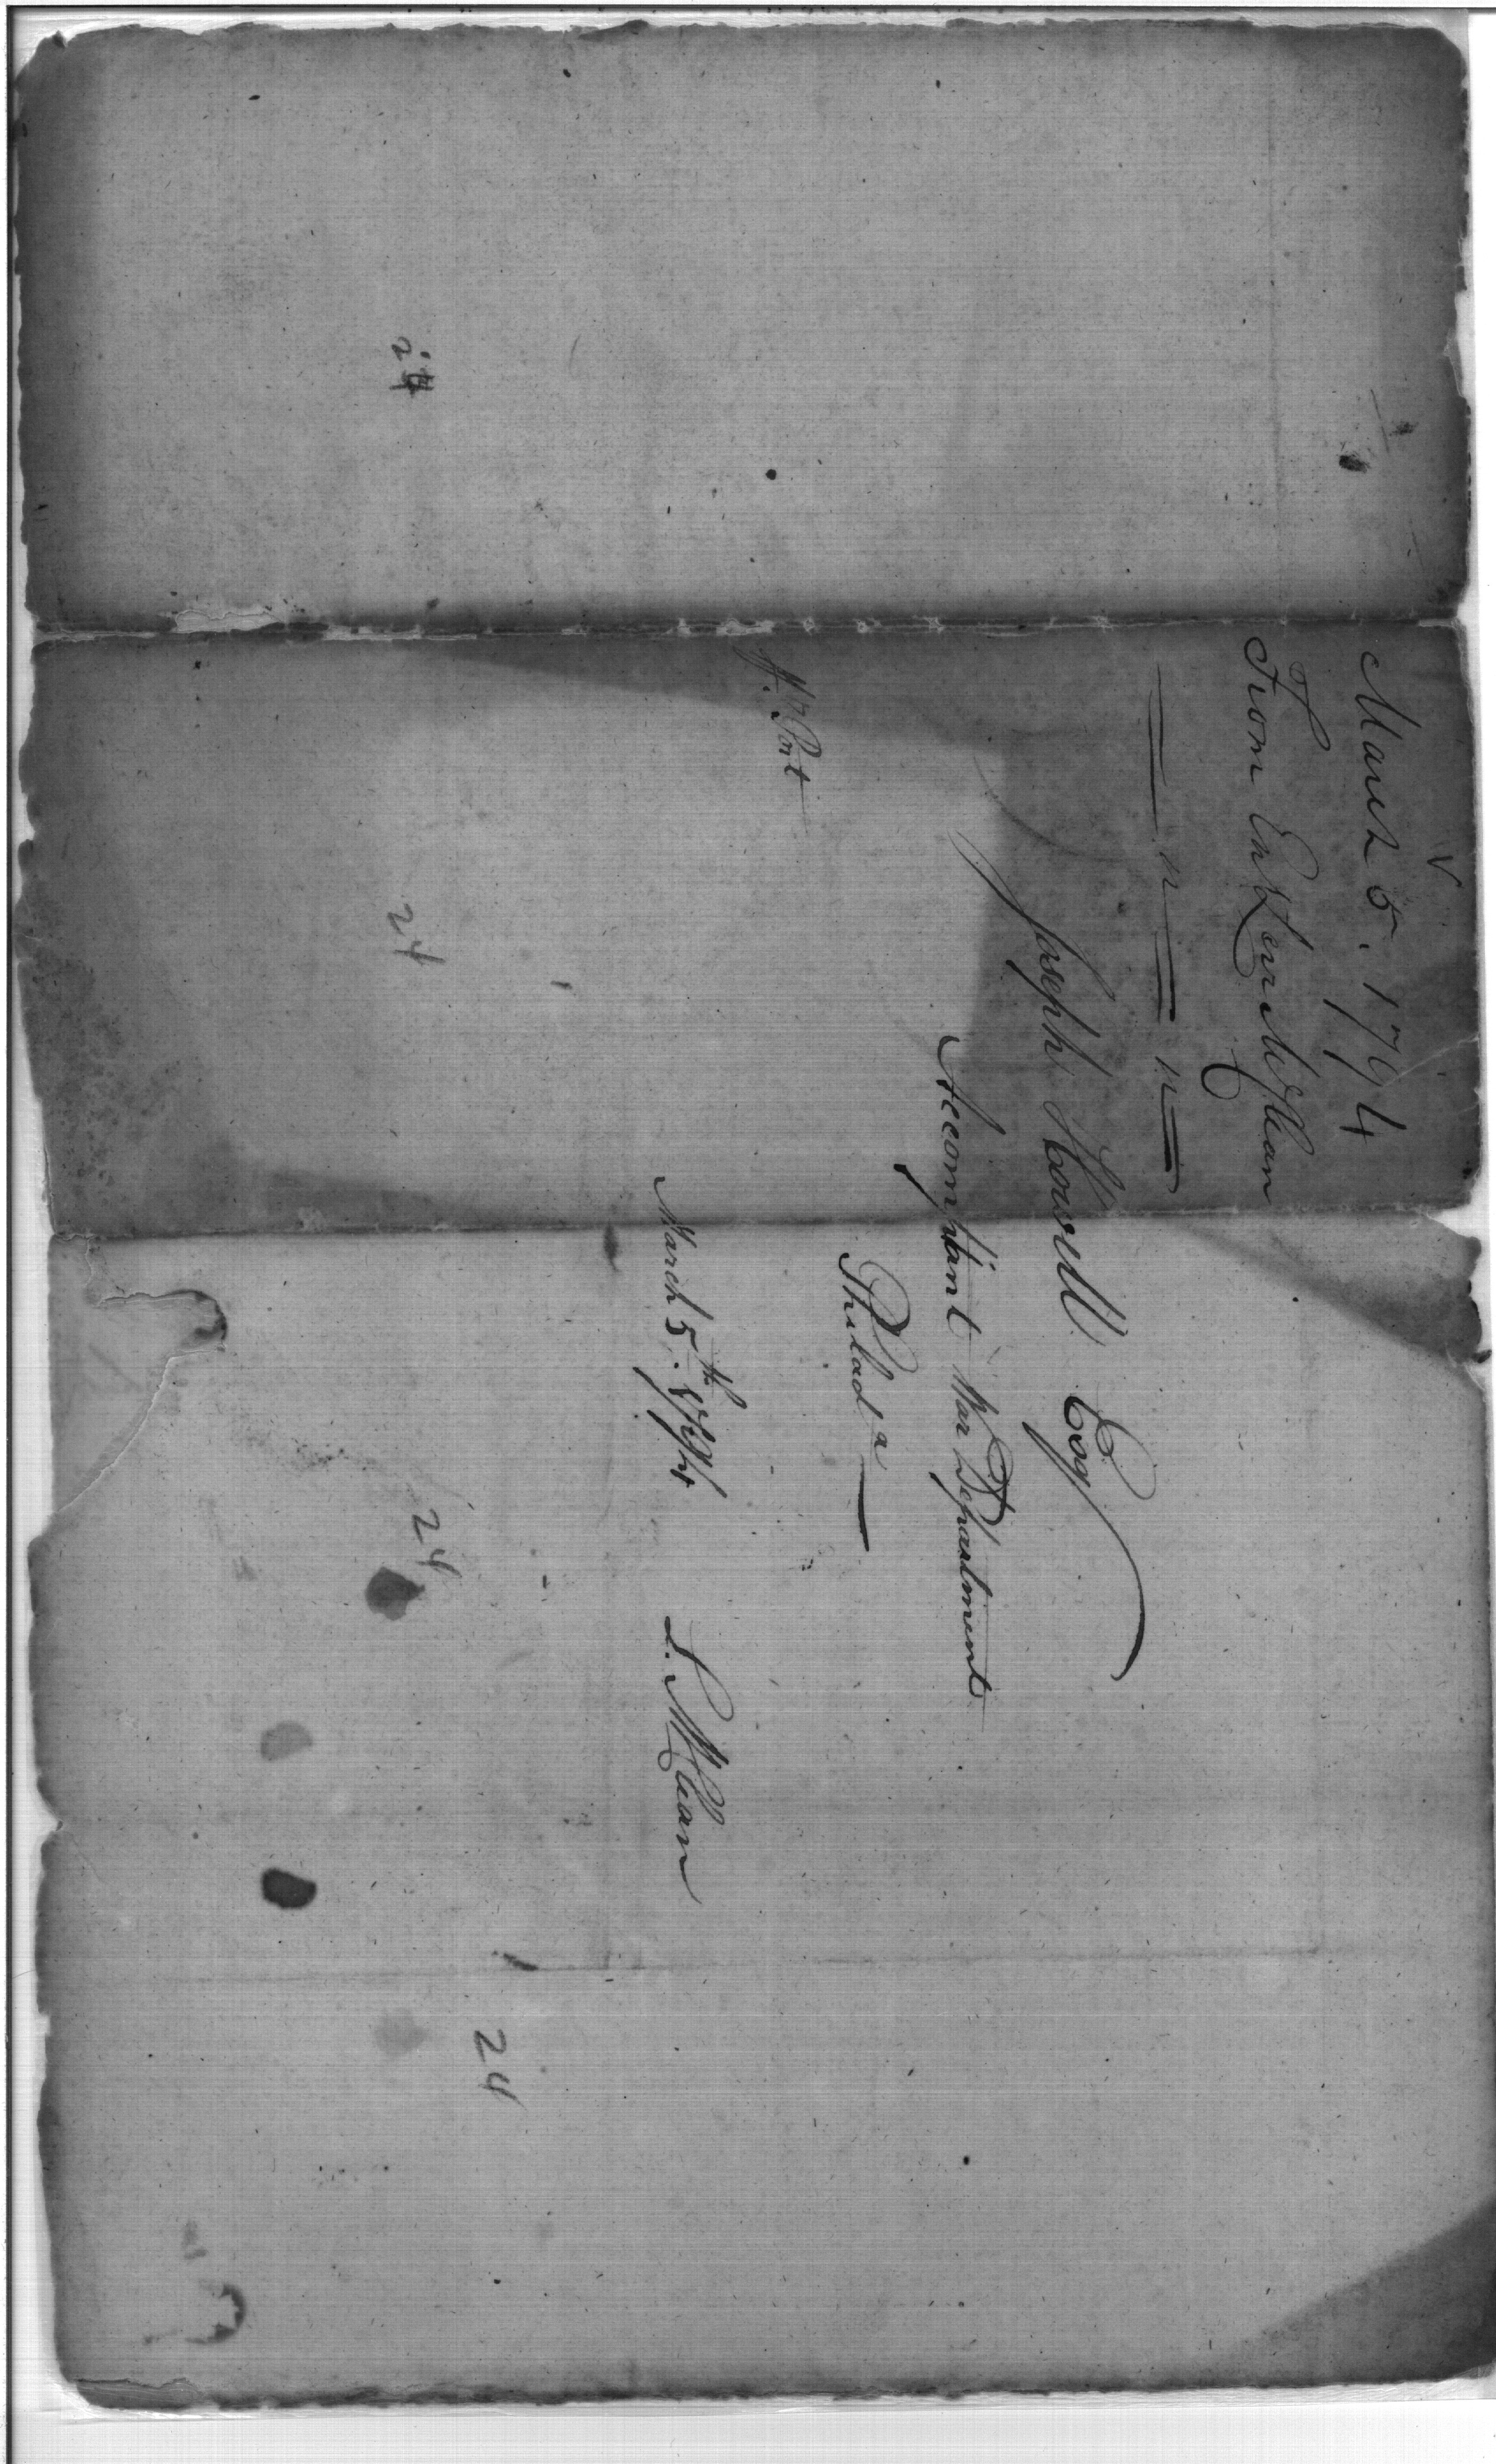 v
March 5. 1794
From Ens Levi McClean
— " — " —
Joseph Howell Esq
Accomptant War Department
Philad a —
W. Point
March 5th. 1794
L. McClean
24
24
24
24